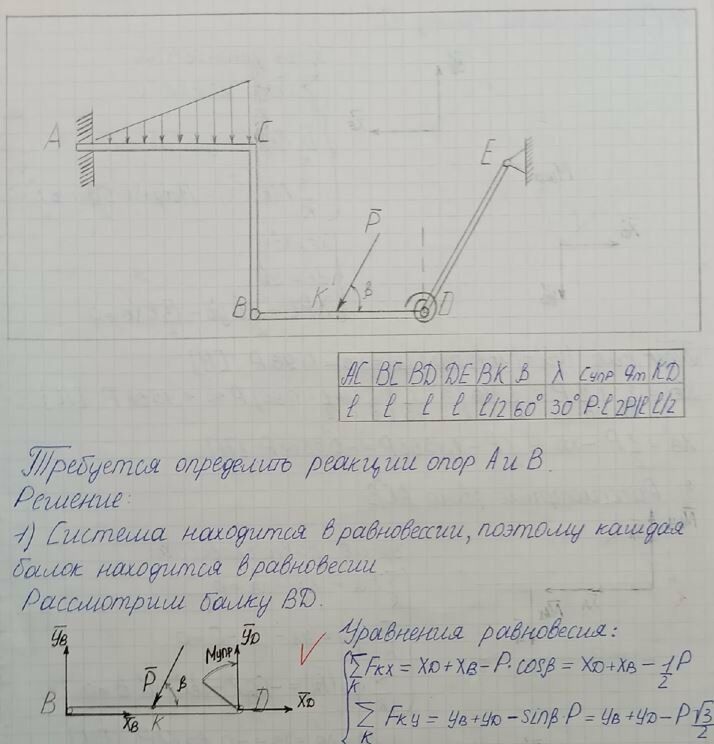 A
C
E
P̄
B
K
β
D
AC BC BD DE BK β λ Cупр qm KD
l l l l l/2 60° 30° P·l 2P/l l/2
Требуется определить реакции опор A и B.
Решение:
1) Система находится в равновессии, поэтому каждая
балок находится в равновесии.
Рассмотрим балку BD.
ȳB
P̄
β
Mупр
ȳD
B
x̄B
K
D
x̄D
Уравнения равновесия:
∑Fкx = XD + XB − P·cosβ = XD + XB − 1/2 P
K
∑Fкy = yB + yD − sinβ·P = yB + yD − P√3/2
K